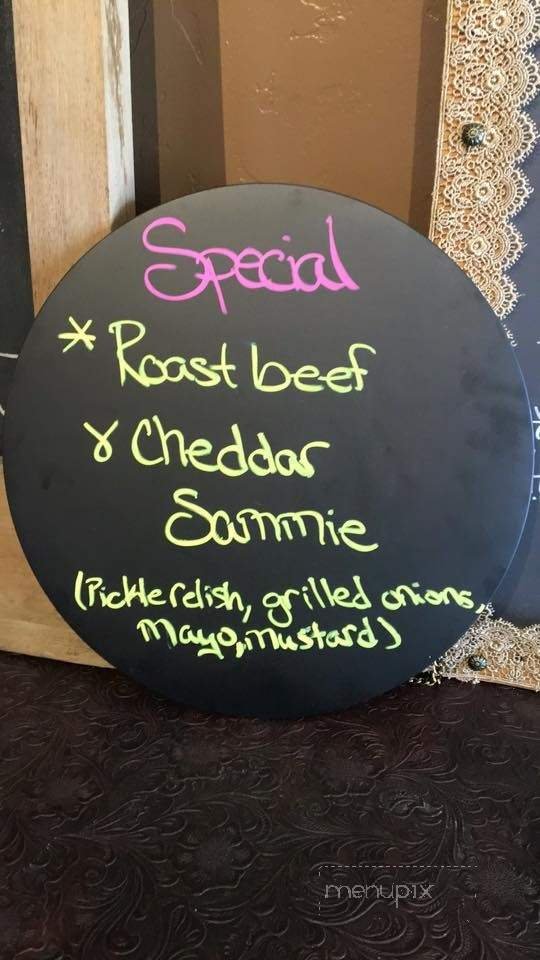 Special
* Roast beef
& Cheddar
Sammie
(Pickle relish, grilled onions,
Mayo, mustard)
menupix